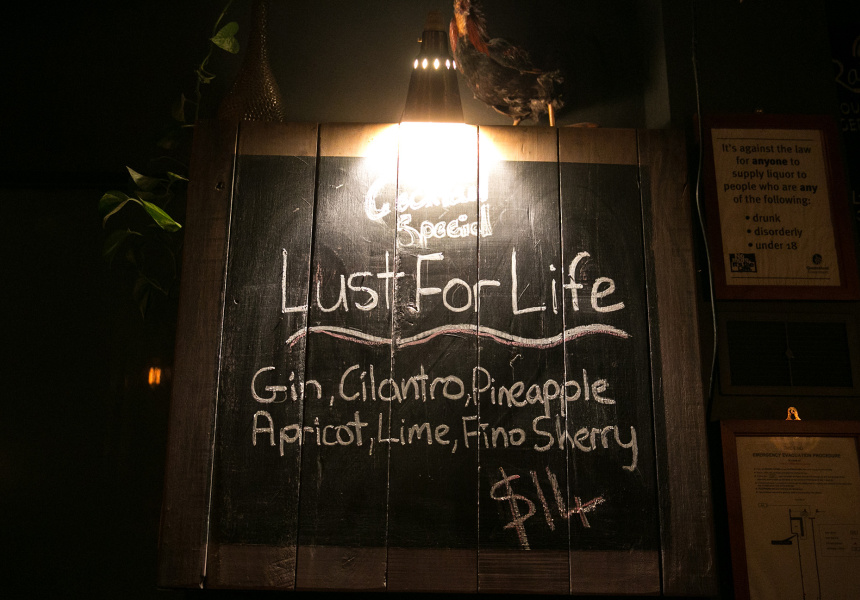 Cocktail
Special
Lust For Life
Gin, Cilantro, Pineapple
Apricot, Lime, Fino Sherry
$14
It's against the law
for anyone to
supply liquor to
people who are any
of the following:
• drunk
• disorderly
• under 18
EMERGENCY EVACUATION PROCEDURE